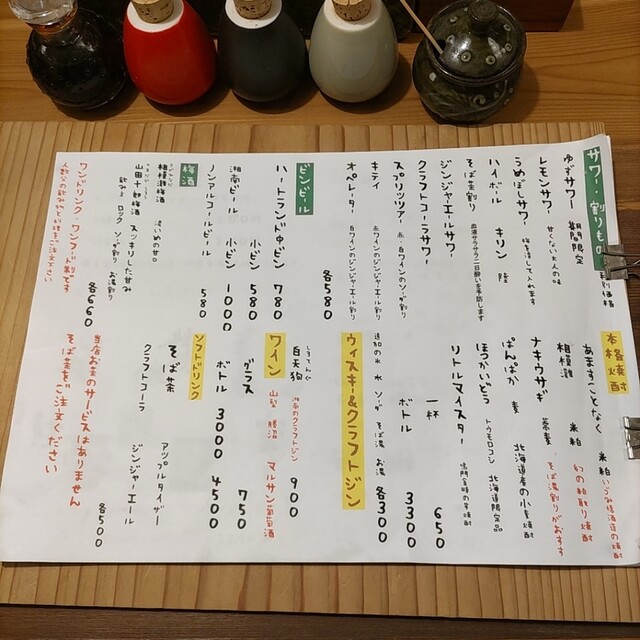 サワー・割りもの
ゆずサワー 期間限定
レモンサワー 甘くない大人の味
うめぼしサワー 梅を潰して入れます
ハイボール キリン 陸
そば茶割り 血液サラサラ二日酔いを予防します
ジンジャエールサワー
クラフトコーラサワー
スプリッツァー 赤・白ワインのソーダ割り
キティ 赤ワインのジンジャエール割り
オペレーター 白ワインのジンジャエール割り
各580
ビンビール
ハートランド中ビン 780
小ビン 580
湘南ビール 小ビン 1000
ノンアルコールビール 580
梅酒
相模灘梅酒 濃いめの甘口
山田十郎梅酒 スッキリした甘み
飲み方 ロック ソーダ割り お湯割り
各660
ワンドリンク・ワンフード制です
人数分の飲みものとお料理をご注文下さい
本格焼酎
あまることなく 米粕 いづみ橋酒造の焼酎
相模灘 米粕 幻の粕取り焼酎
ナキウサギ 蕎麦 そば湯割りがおすすめ
ぱんぱか 麦 北海道産の小麦焼酎
ほっかいどう トウモロコシ 北海道限定品
リトルマイスター
一杯 650
ボトル 3300
追加の氷 水 ソーダ そば茶 お湯 各300
ウィスキー&クラフトジン
白天狗 湘南のクラフトジン 900
ワイン 山梨 勝沼 マルサン葡萄酒
グラス 750
ボトル 3000 4500
ソフトドリンク
そば茶 アップルタイザー
クラフトコーラ ジンジャーエール
各500
当店お茶のサービスはありません
そば茶をご注文ください